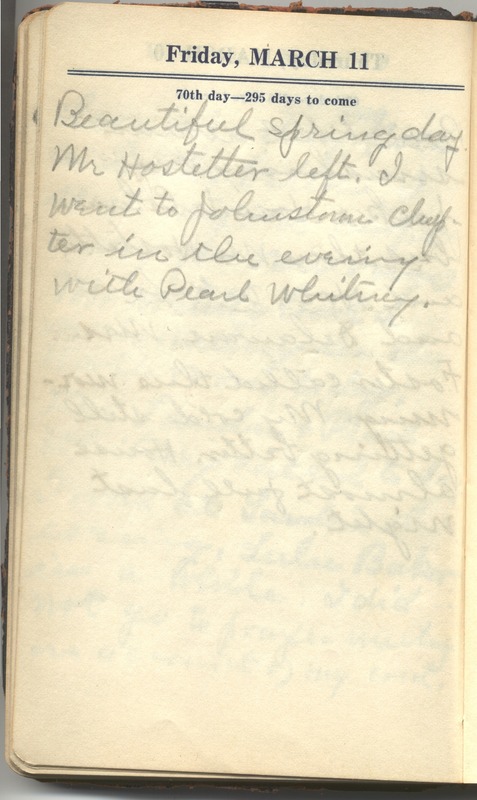 Friday, MARCH 11
70th day—295 days to come
Beautiful spring day.
Mr Hostetter left. I
went to Johnstown Chap-
ter in the evening
with Pearl Whitney.